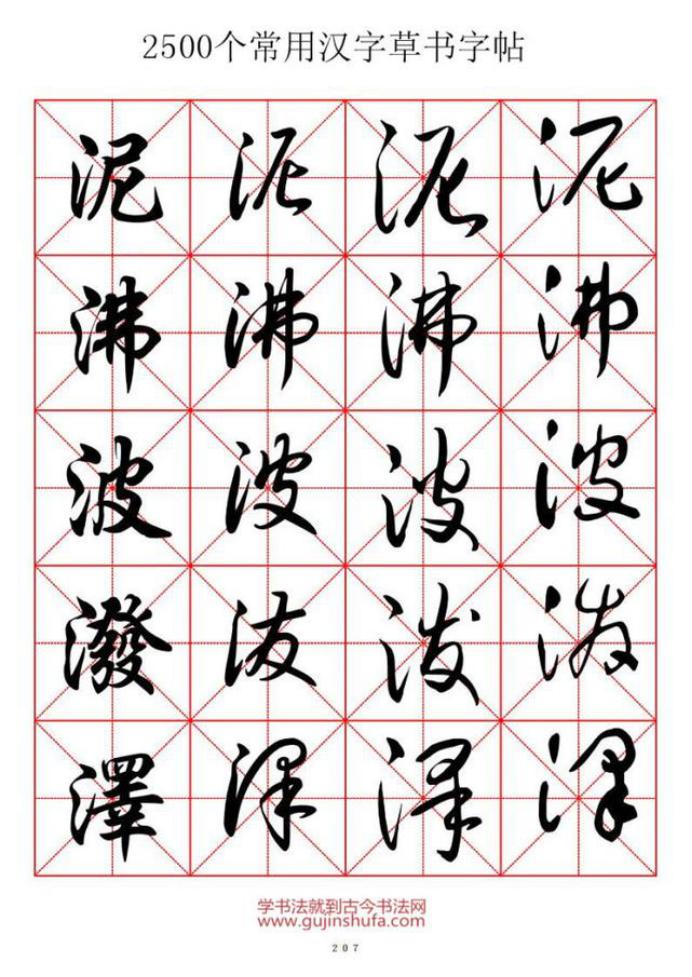 2500个常用汉字草书字帖
泥泥泥泥
沸沸沸沸
波波波波
潑泼泼泼
澤泽泽泽
学书法就到古今书法网
www.gujinshufa.com
207